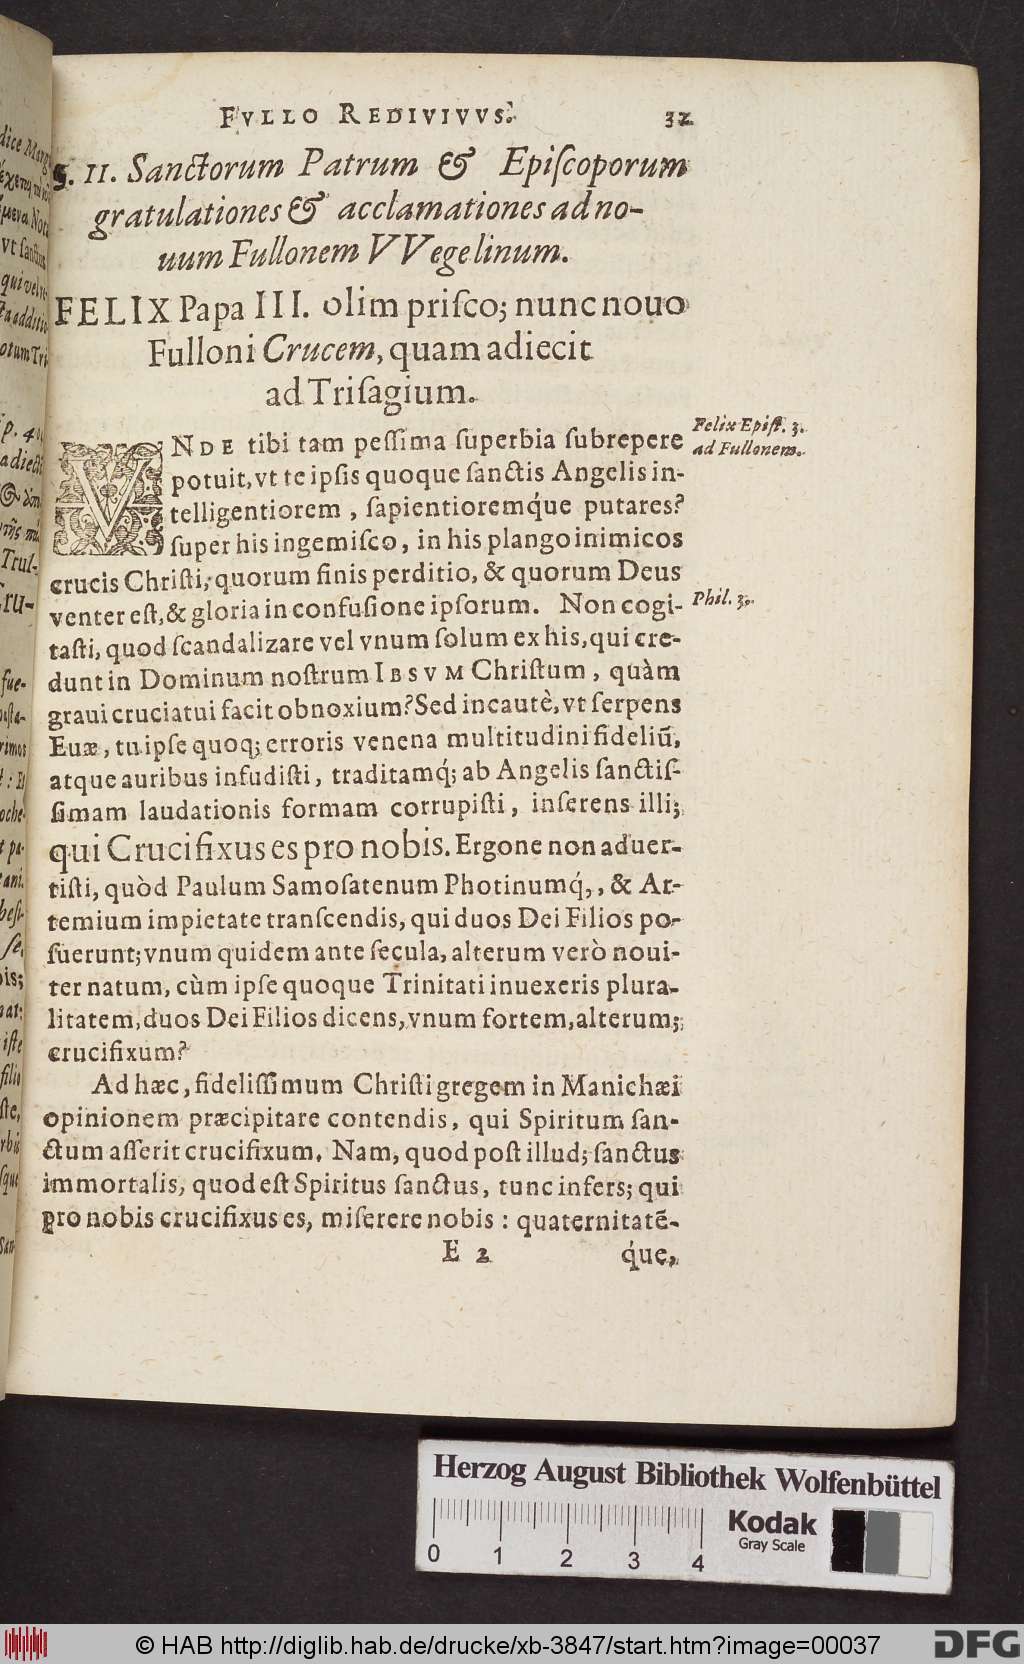 FVLLO REDIVIVVS. 32
§. II. Sanctorum Patrum & Epiſcoporum
gratulationes & acclamationes ad no-
uum Fullonem VVegelinum.
FELIX Papa III. olim priſco; nunc nouo
Fulloni Crucem, quam adiecit
ad Triſagium.
VNDE tibi tam peſſima ſuperbia ſubrepere
potuit, vt te ipſis quoque ſanctis Angelis in-
telligentiorem, ſapientioremq́ue putares?
ſuper his ingemiſco, in his plango inimicos
crucis Chriſti, quorum finis perditio, & quorum Deus
venter eſt, & gloria in confuſione ipſorum. Non cogi-
taſti, quod ſcandalizare vel vnum ſolum ex his, qui cre-
dunt in Dominum noſtrum IESVM Chriſtum, quàm
graui cruciatui facit obnoxium? Sed incautè, vt ſerpens
Euæ, tu ipſe quoq; erroris venena multitudini fideliũ,
atque auribus infudiſti, traditamq́; ab Angelis ſanctiſ-
ſimam laudationis formam corrupiſti, inſerens illi;
qui Crucifixus es pro nobis. Ergone non aduer-
tiſti, quòd Paulum Samoſatenum Photinumq́;, & Ar-
temium impietate tranſcendis, qui duos Dei Filios po-
ſuerunt; vnum quidem ante ſecula, alterum verò noui-
ter natum, cùm ipſe quoque Trinitati inuexeris plura-
litatem, duos Dei Filios dicens, vnum fortem, alterum;
crucifixum?
Ad hæc, fideliſſimum Chriſti gregem in Manichæi
opinionem præcipitare contendis, qui Spiritum ſan-
ctum aſſerit crucifixum. Nam, quod poſt illud; ſanctus
immortalis, quod eſt Spiritus ſanctus, tunc infers; qui
pro nobis crucifixus es, miſerere nobis: quaternitatē-
E 2 q́ue,
Felix Epiſt. 3.
ad Fullonem.
Phil. 3.
Herzog August Bibliothek Wolfenbüttel
0 1 2 3 4
Kodak
Gray Scale
© HAB http://diglib.hab.de/drucke/xb-3847/start.htm?image=00037
DFG